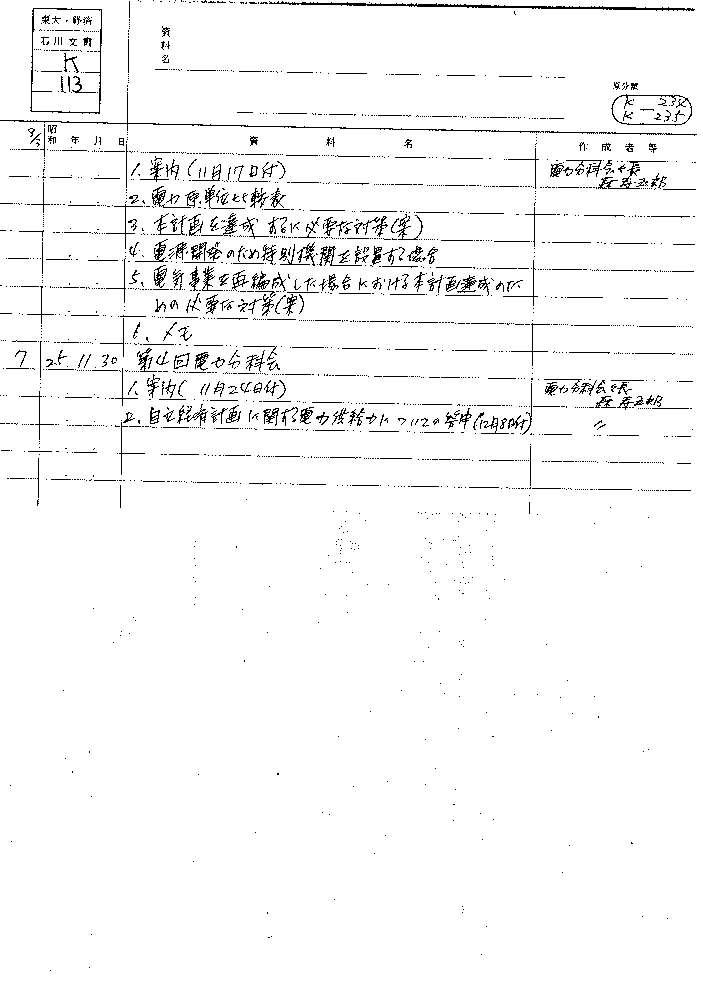 東大・経済
石川文書
K
113
資料名
原分類
K — 234
K — 235
昭和 年 月 日
資料名
作成者等
1. 案内(11月17日付)
電力分科会々長
森寿五郎
2. 電力原単位比較表
3. 本計画を達成するに必要な対策(案)
4. 電源開発のため特別機関を設置する場合
5. 電気事業を再編成した場合における本計画達成のた
めの必要な対策(案)
6. メモ
7 25 11 30 第4回電力分科会
1. 案内(11月24日付)
電力分科会々長
森寿五郎
2. 自立経済計画に関する電力供給力についての答申(12月8日付)
〃